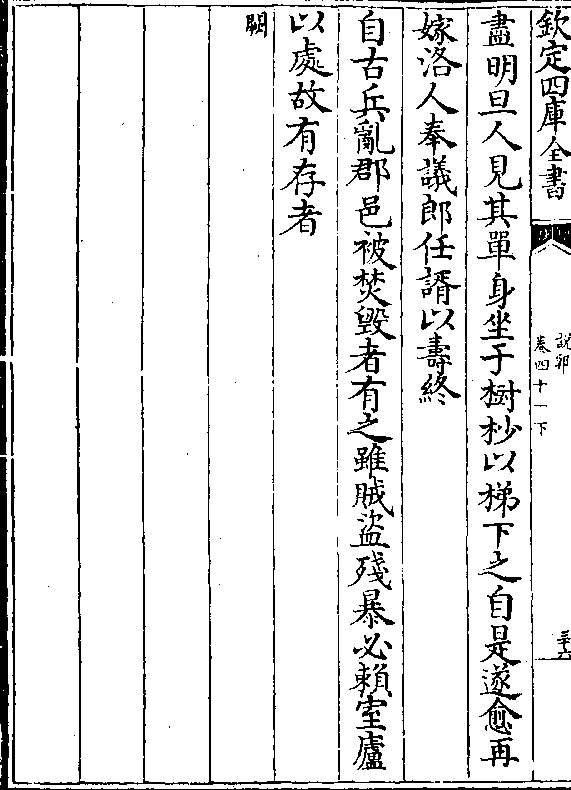 欽定四庫全書
說郛
卷四十一下
三十六
盡明旦人見其單身坐于樹杪以梯下之自是遂愈再
嫁洛人奉議郎任諝以壽終
自古兵亂郡邑被焚毀者有之雖賊盜殘暴必賴室廬
以處故有存者
闕